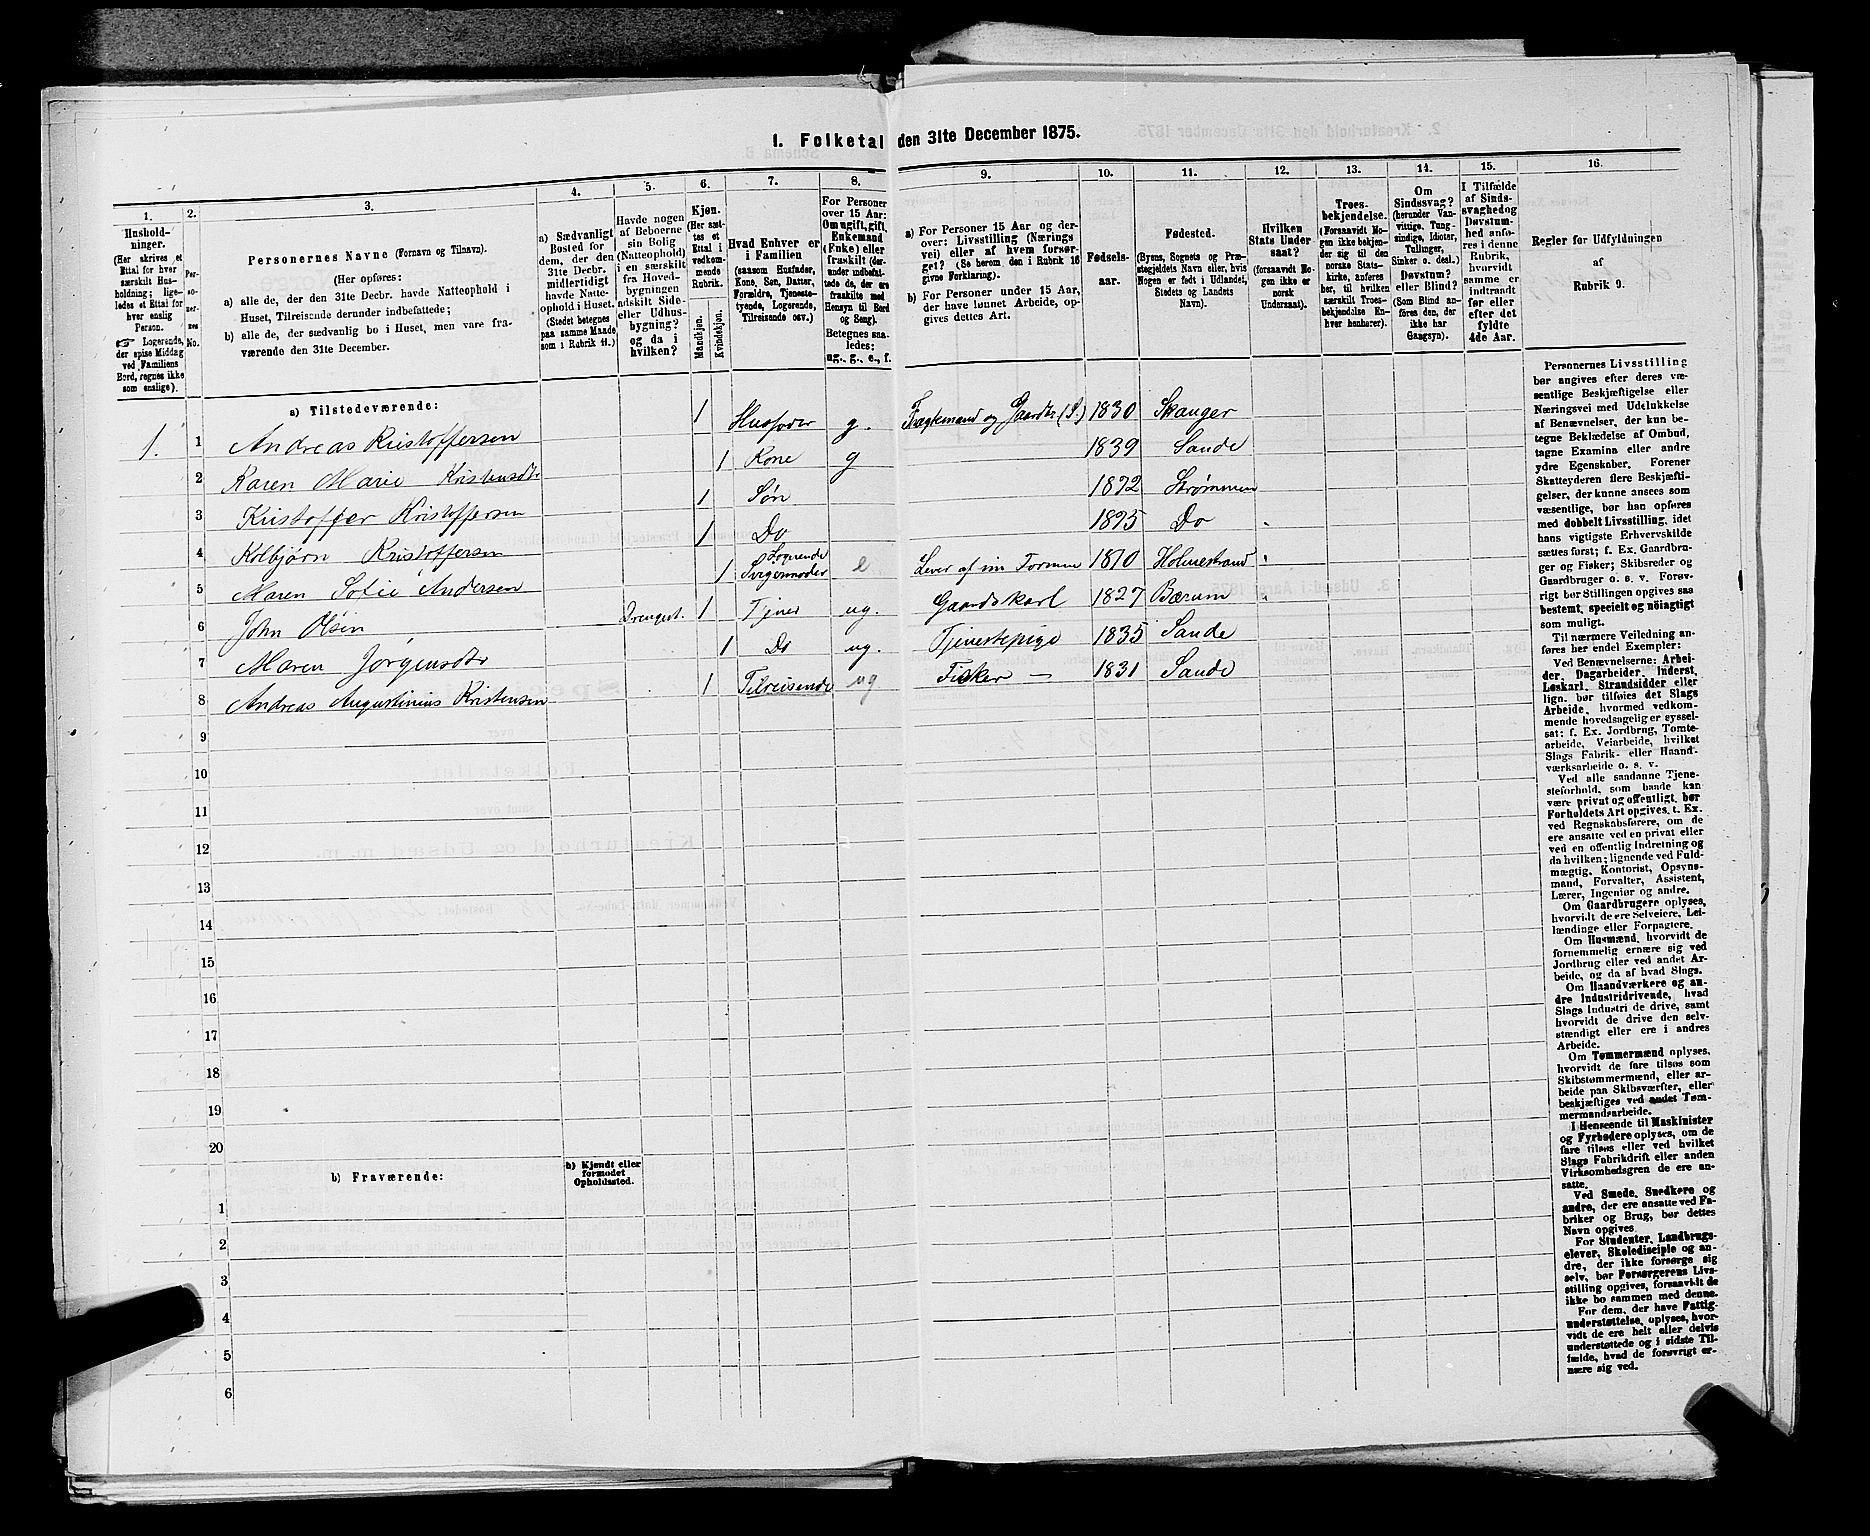 I. Folketal den 31te December 1875.
1.
Husholdninger.
(Her skrives et
Ettal for hver
særskilt Husholdning;
ligeledes et Ettal for
hver enslig
Person.
☞ Logerende,
der spise Middag
ved Familiens
Bord, regnes ikke
som enslige).
2.
Personernes
No.
3.
Personernes Navne (Fornavn og Tilnavn).
(Her opføres:
a) alle de, der den 31te Decbr. havde Natteophold i
Huset, Tilreisende derunder indbefattede;
b) alle de, der sædvanlig bo i Huset, men vare fraværende den 31te December.
4.
a) Sædvanligt
Bosted for
dem, der den
31te Decbr.
midlertidigt
havde Natteophold i Huset.
(Stedet betegnes
paa samme Maade
som i Rubrik 11.)
5.
Havde nogen
af Beboerne
sin Bolig
(Natteophold)
i en særskilt
fra Hovedbygningen
adskilt Side-
eller Udhusbygning?
og da i
hvilken?
6.
Kjøn.
(Her sættes et
Ettal i
vedkommende
Rubrik.
Mandkjøn.
Kvindekjøn.
7.
Hvad Enhver er
i Familien
(saasom Husfader,
Kone, Søn, Datter,
Forældre, Tjenestetyende, Logerende,
Tilreisende osv.)
8.
For Personer
over 15 Aar:
Om ugift, gift,
Enkemand
(Enke) eller
fraskilt (derunder indbefattede de, der ere
fraskilte med
Hensyn til Bord
og Seng).
Betegnes saaledes:
ug., g., e., f.
9.
a) For Personer 15 Aar og derover: Livsstilling (Næringsvei) eller af hvem forsørget? (Se herom den i Rubrik 16
givne Forklaring).
b) For Personer under 15 Aar,
der have lønnet Arbeide, opgives dettes Art.
10.
Fødselsaar.
11.
Fødested.
(Byens, Sognets og Præstegjeldets Navn eller, hvis
Nogen er født i Udlandet,
Stedets og Landets
Navn).
12.
Hvilken
Stats Undersaat?
(forsaavidt Nogen ikke er
norsk
Undersaat).
13.
Troesbekjendelse.
(Forsaavidt Nogen ikke bekjender sig til den
norske Statskirke, anføres
her, til hvilken
særskilt Troesbekjendelse Enhver henhører).
14.
Om
Sindssvag?
(herunder Vanvittige, Tungsindige, Idioter,
Tullinger,
Sinker o. desl.)
Døvstum?
eller Blind?
(Som Blind anføres den, der
ikke har
Gangsyn).
15.
I Tilfælde
af Sindssvaghed og
Døvstumhed anføres i denne
Rubrik,
hvorvidt
samme er
indtraadt
før eller
efter det
fyldte
4de Aar.
16.
Regler for Udfyldningen
af
Rubrik 9.
a) Tilstedeværende:
1. 1 Andreas Kristoffersen 1 Husfader g. Fragtemand og Gaardbr (S.) 1830 Skauger
2 Karen Marie Kristensdtr 1 Kone g 1839 Sande
3 Kristoffer Kristoffersen 1 Søn 1872 Strømmen
4 Kolbjørn Kristoffersen 1 Do 1875 Do
5 Maren Sofie Andersen 1 Logerende Svigermoder e Lever af sin Formue 1810 Holmestrand
6 John Olsen Drengest. 1 Tjener ug. Gaardskarl 1827 Bærum
7 Maren Jørgensdtr 1 Do ug. Tjenestepige 1835 Sande
8 Andreas Augustinius Kristensen 1 Tilreisende ug Fisker — 1831 Sande
9
10
11
12
13
14
15
16
17
18
19
20
b) Fraværende:
b) Kjendt eller
formodet
Opholdssted.
1
2
3
4
5
6
Personernes Livsstilling
bør angives efter deres væsentlige Beskjæftigelse eller
Næringsvei med Udelukkelse
af Benævnelser, der kun betegne Beklædelse af Ombud,
tagne Examina eller andre
ydre Egenskaber. Forener
Skatteyderen flere Beskjæftigelser, der kunne ansees som
væsentlige, bør han opføres
med dobbelt Livsstilling, idet
hans vigtigste Erhvervskilde
sættes først; f. Ex. Gaardbruger og Fisker; Skibsreder og
Gaardbruger o. s. v. Forøvrigt bør Stillingen opgives saa
bestemt, specielt og nøiagtigt
som muligt.
Til nærmere Veiledning anføres her endel Exempler:
Ved Benævnelserne: Arbeider, Dagarbeider, Inderst,
Løskarl, Strandsidder eller
lign. bør tilføies det Slags
Arbeide, hvormed vedkommende hovedsagelig er sysselsat: f. Ex. Jordbrug, Tomtearbeide, Veiarbeide, hvilket
Slags Fabrik- eller Haandværksarbeide o. s. v.
Ved alle saadanne Tjenesteforhold, som baade kan
være privat og offentligt, bør
Forholdets Art opgives, t. Ex.
ved Regnskabsførere, om de
ere ansatte ved en privat eller
ved en offentlig Indretning og
da hvilken; lignende ved Fuldmægtig, Kontorist, Opsynsmand, Forvalter, Assistent,
Lærer, Ingeniør og andre.
Om Gaardbrugere oplyses,
hvorvidt de ere Selveiere, Leilændinge eller Forpagtere.
Om Husmænd, hvorvidt de
fornemmelig ernære sig ved
Jordbrug eller ved andet Arbeide, og da af hvad Slags.
Om Haandværkere og andre Industridrivende, hvad
Slags Industri de drive, samt
hvorvidt de drive den selvstændigt eller ere i andres
Arbeide.
Om Tømmermænd oplyses,
hvorvidt de fare tilsøs som
Skibstømmermænd, eller arbeide paa Skibsværfter, eller
beskjæftiges ved andet Tømmermandsarbeide.
I Henseende til Maskinister
og Fyrbødere oplyses, om de
fare tilsøs eller ved hvilket
Slags Fabrikdrift eller anden
Virksomhedsgren de ere ansatte.
Ved Smede, Snedkere og
andre, der ere ansatte ved Fabriker og Brug, bør dettes
Navn opgives.
For Studenter, Landbrugselever, Skoledisciple og andre, der ikke forsørge sig
selv, bør Forsørgerens Livsstilling opgives, forsaavidt de
ikke bo sammen med denne.
For dem, der have Fattigunderstøttelse, oplyses, hvorvidt de ere helt eller delvis
understøttede og i sidste Tilfælde, hvad de forøvrigt ernære sig ved.